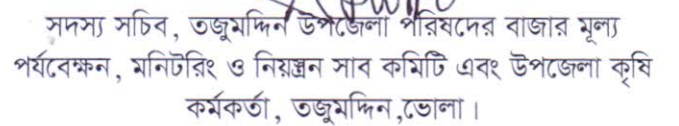 সদস্য সচিব, তজুমদ্দিন উপজেলা পরিষদের বাজার মূল্য
পর্যবেক্ষন, মনিটরিং ও নিয়ন্ত্রন সাব কমিটি এবং উপজেলা কৃষি
কর্মকর্তা, তজুমদ্দিন,ভোলা।